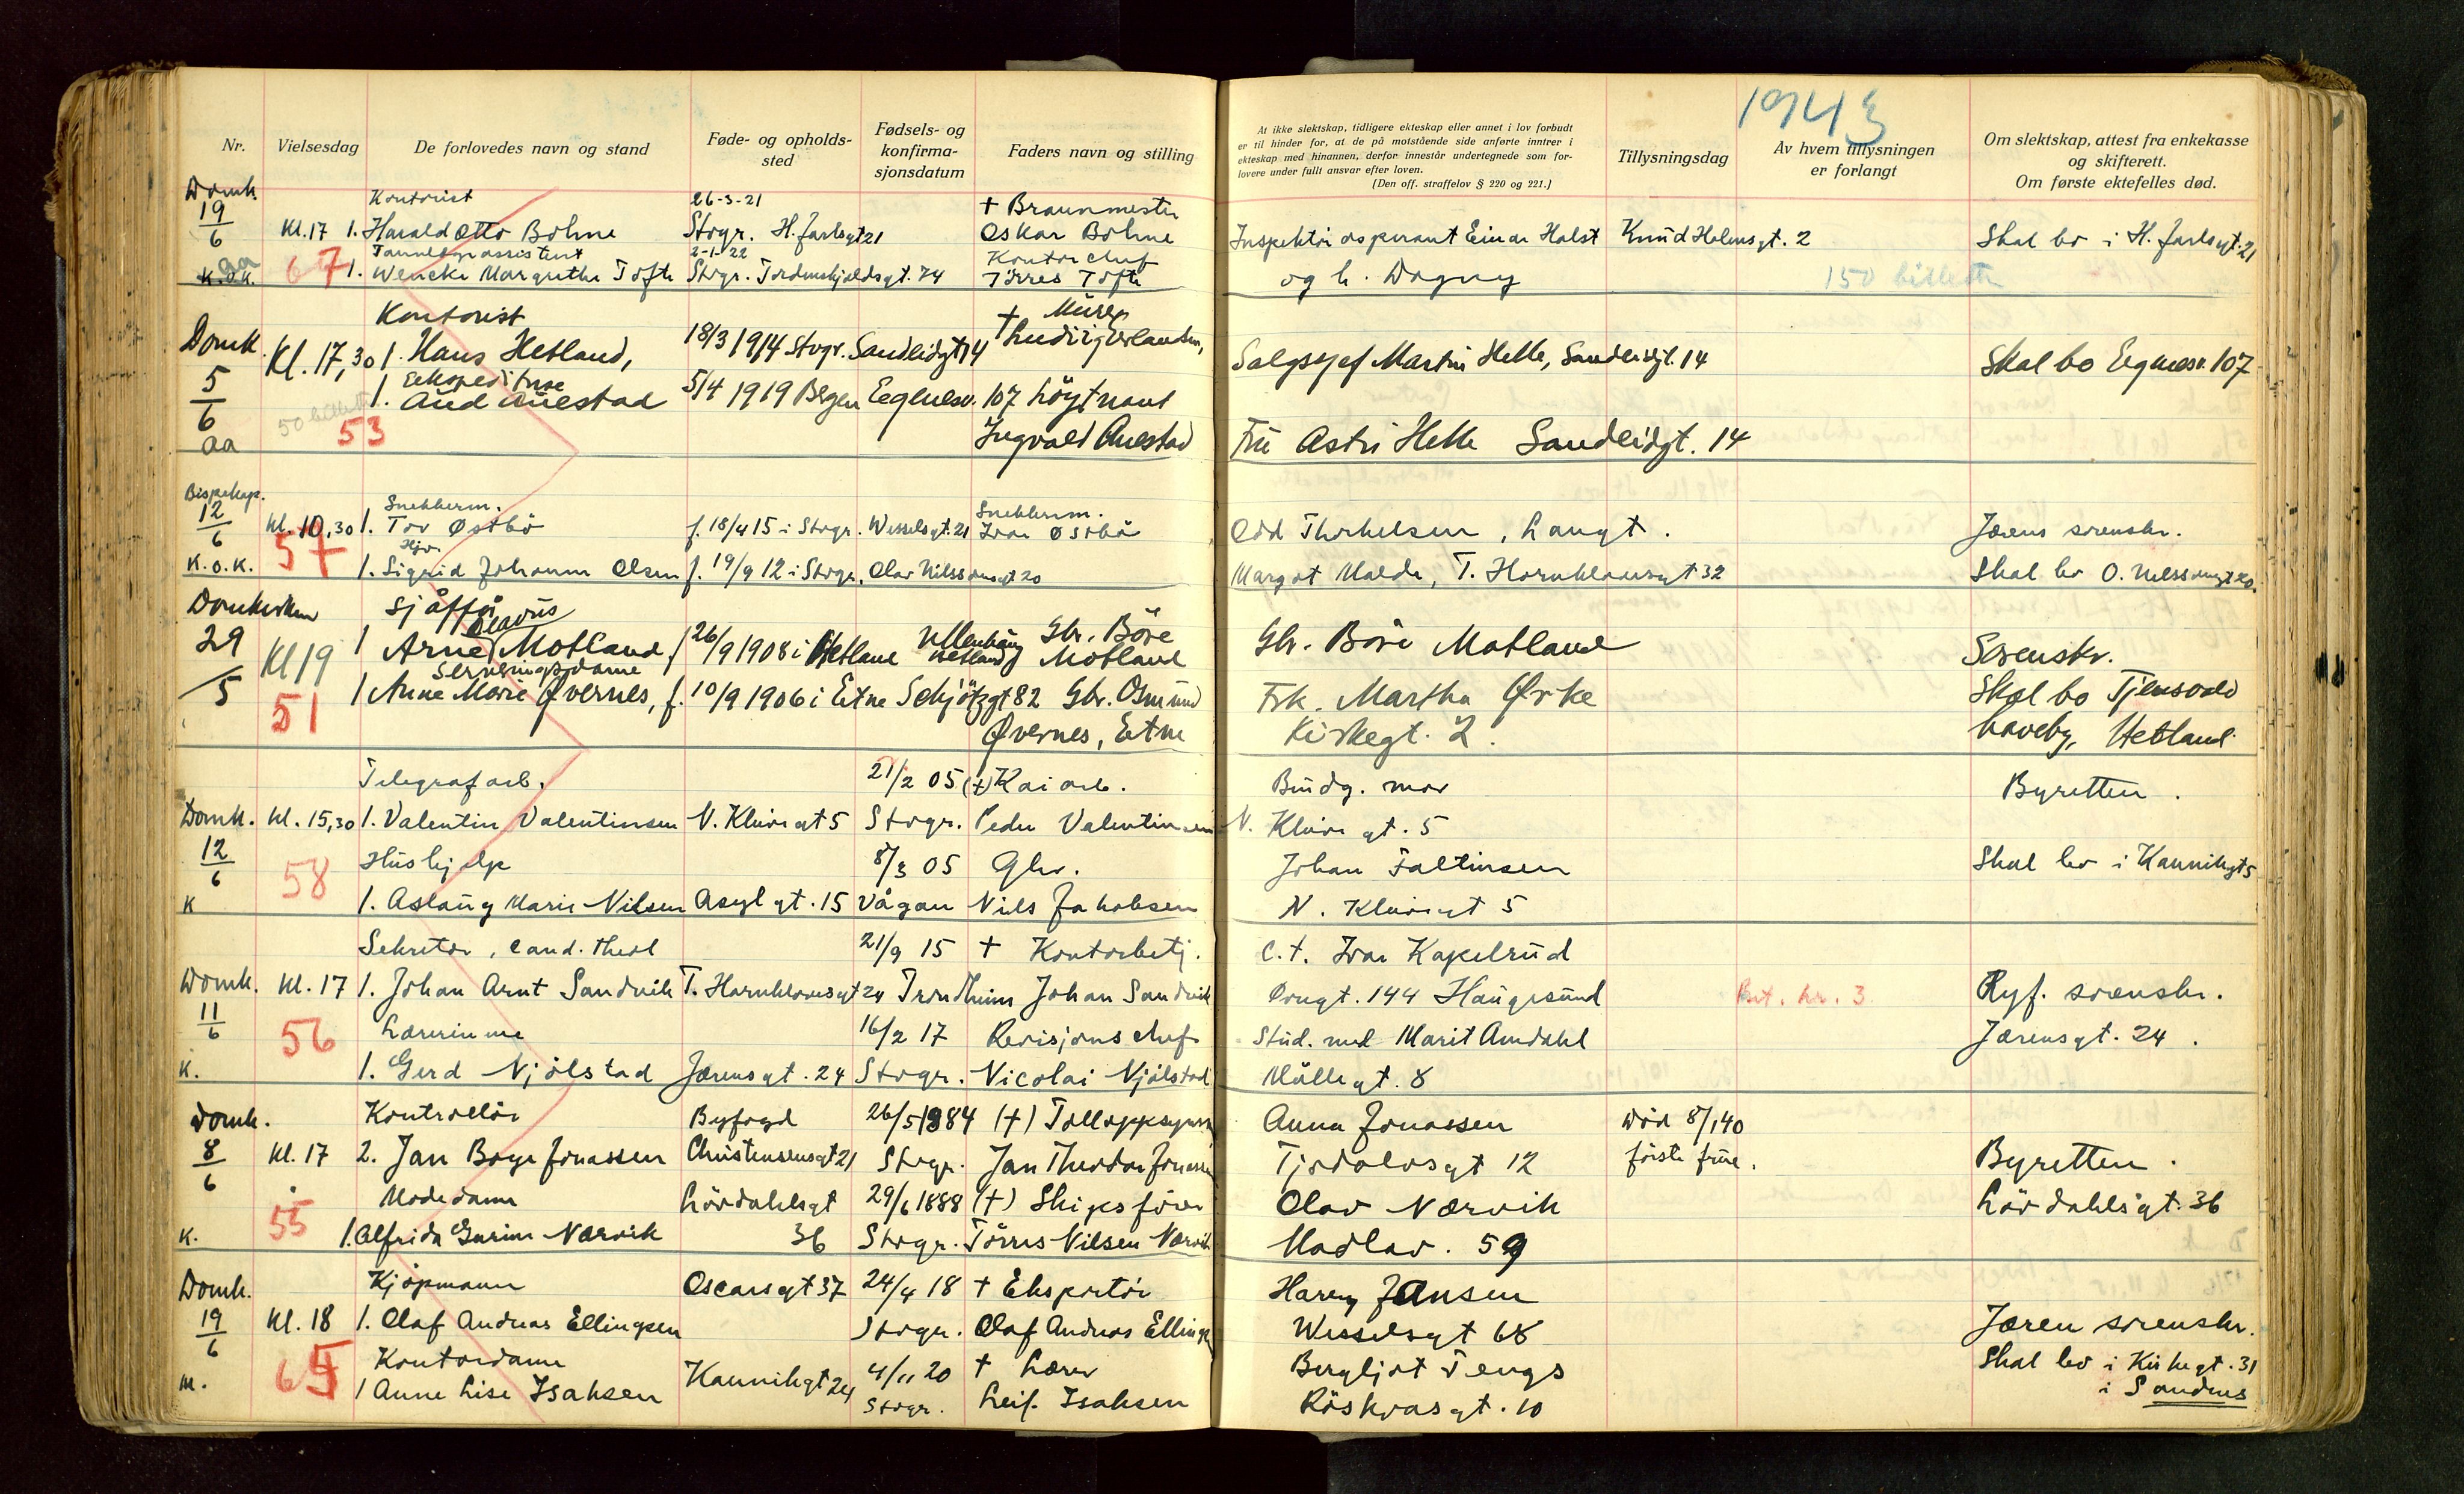 Nr.
Vielsesdag
De forlovedes navn og stand
Føde- og opholds-
sted
Fødsels- og
konfirma-
sjonsdatum
Faders navn og stilling
At ikke slektskap, tidligere ekteskap eller annet i lov forbudt
er til hinder for, at de på motstående side anførte inntrer i
ekteskap med hinannen, derfor innestår undertegnede som for-
lovere under fullt ansvar efter loven.
(Den off. straffelov § 220 og 221.)
Tillysningsdag
1943
Av hvem tillysningen
er forlangt
Om slektskap, attest fra enkekasse
og skifterett.
Om første ektefelles død.
Domk. Kontorist 26-3-21
19/6 Kl. 17 1. Harald Otto Bohne Stvgr. H. Jarlsgt 21 Oskar Bohne Inspektør aspirant Einar Holst Knud Holmsgt. 2 Skal bo i H. Jarlsgt. 21
Tannlegeassistent 2-1-22 Kontorchef
aa K.o.K. 67 1. Wencke Margrethe Tofte Stvgr. Tordenskjoldsgt. 74 Tørres Tofte og h. Dagny 150 billetter
Kontorist † Murer
Domk. Kl. 17,30 1. Hans Hetland, 18/3 1914 Stvgr. Sandeidgt 14 Salgssjef Martin Helle, Sandeidgt. 14 Skal bo Eignesv. 107
Ekspeditrise
5/6 1. Aud Auestad 5/4 1919 Bergen Eignesv. 107 Løytnant
50 billetter 53
aa Ingvald Auestad Fru Astri Helle Sandeidgt. 14
Bispekap. Snekkerm. Snekkerm.
12/6 Kl. 10,30 1. Tor Østbø f. 18/4 15 i Stvgr. Wesselsgt. 21 Ivar Østbø Odd Thorkelsen, Langt. Jærens sorenskr.
57 Hjv.
K.o.K. 1. Sigrid Johanne Olsen f. 19/9 12 i Stvgr. Olav Nilssonsgt 20 Margot Malde, T. Hornklovesgt 32 Skal bo O. Nilssonsgt 20.
Domkirken Sjåffør
29/5 Kl 19 1 Arne Olavus Motland, f 26/9 1908 i Hetland Ullenhaug Hetland Gbr. Børe Motland Gbr. Børe Motland Sorenskr.
Serveringsdame
51 1 Anne Marie Øvernes, f. 10/9 1906 i Etne Schjøtzgt 82 Gbr. Osmund Frk. Martha Ørke Skal bo Tjensvoll
Øvernes, Etne Kirkegt. 2. haveby, Hetland
Telegrafarb. 21/2 05 (†) Kaiarb. Budg. mor Byretten.
Domk. Kl. 15,30 1. Valentin Valentinsen N. Kleivegt 5 Stvgr. Peder Valentinsen N. Kleivegt. 5
12/6 58 Hushjelp 8/3 05 Gbr. Johan Faltinsen Skal bo i Kannikgt 5
K 1. Aslaug Marie Nilsen Asylgt. 15 Vågan Nils Jakobsen N. Kleivegt 5
Sekretær, cand. theol 21/9 15 † Kontorbetj. C.t. Ivar Kapelrud
Domk. Kl. 17 1. Johan Arnt Sandvik T. Hornklovesgt 24 Trondheim Johan Sandvik 144 Haugesund Bet. kr. 3 Ryf. sorenskr.
11/6 56 Lærerinne 16/2 17 Revisjonschef Stud. med Marit Amdahl Jærensgt. 24.
K. 1. Gerd Njølstad Jærensgt. 24 Stvgr. Nicolai Njølstad Møllegt. 8
Domk. Kontrollør Byfogd 26/5 1884 (†) Tolloppsynsm Anna Jonassen Død 8/1 40
8/6 Kl. 17 2. Jan Børge Jonassen Christensensgt 21 Stvgr. Jan Theodor Jonassen Tjodolvsgt 12 første frue. Byretten.
55 Motedame Løvdahlsgt 29/6 1888 (†) Skipsfører Olav Nærvik Løvdahlsgt. 36
K. 1. Alfrida Gurine Nærvik 36 Stvgr. Tørres Nilsen Nærvik Madlav. 59
Domk. Kjøpmann Oscarsgt 37 24/4 18 † Eksportør Harry Jansen
19/6 Kl. 18 1. Olaf Andreas Ellingsen Stvgr. Olaf Andreas Ellingsen Wesselsgt 68 Jæren sorenskr.
65 Kontordame Kannikgt 24 4/11 20 † Lærer Bergljot Tengs Skal bo i Kirkegt. 31
m. 1 Anne Lise Isaksen Stvgr. Leif Isaksen Røskvasgt. 10 i Sandnes